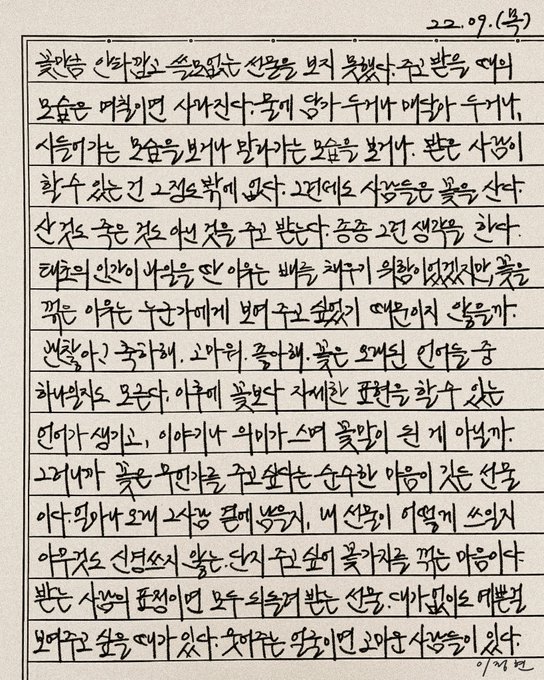 22.09.(목)
꽃만큼 안타깝고 쓸모없는 선물을 보지 못했다. 주고 받을 때의
모습은 며칠이면 사라진다. 물에 담가 두거나 매달아 두거나,
시들어가는 모습을 보거나 말라가는 모습을 보거나. 받은 사람이
할 수 있는 건 그 정도밖에 없다. 그런데도 사람들은 꽃을 산다.
산 것도 죽은 것도 아닌 것을 주고 받는다. 종종 그런 생각을 한다.
태초의 인간이 과일을 딴 이유는 배를 채우기 위함이었겠지만, 꽃을
꺾은 이유는 누군가에게 보여 주고 싶었기 때문이지 않을까.
괜찮아? 축하해. 고마워. 좋아해. 꽃은 오래된 언어들 중
하나일지도 모른다. 이후에 꽃보다 자세한 표현을 할 수 있는
언어가 생기고, 이야기나 의미가 스며 꽃말이 된 게 아닐까.
그러니까 꽃은 무언가를 주고 싶다는 순수한 마음이 깃든 선물
이다. 얼마나 오래 그 사람 곁에 남을지, 내 선물이 어떻게 쓰일지
아무것도 신경쓰지 않는. 단지 주고 싶어 꽃가지를 꺾는 마음이다.
받는 사람의 표정이면 모두 되돌려 받는 선물. 대가 없이도 예쁜 걸
보여주고 싶을 때가 있다. 웃어주는 얼굴이면 고마운 사람들이 있다.
이정현